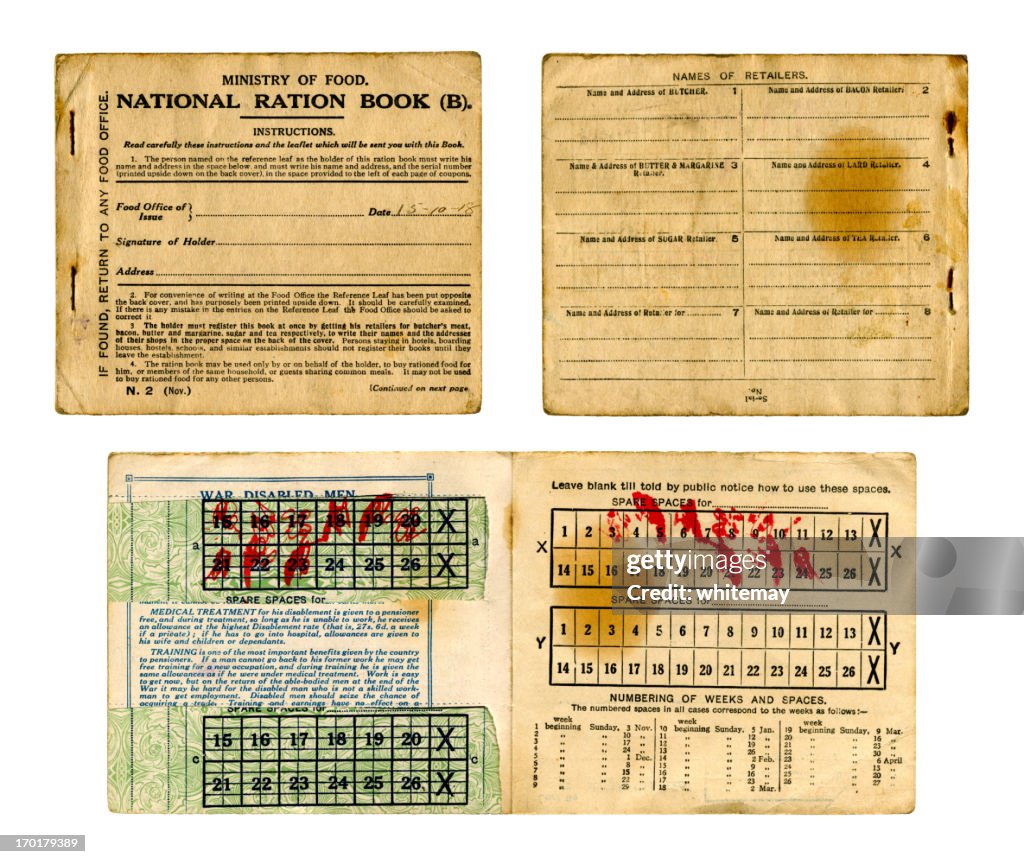 MINISTRY OF FOOD.
NATIONAL RATION BOOK (B).
INSTRUCTIONS.
Read carefully these instructions and the leaflet which will be sent you with this Book.
1. The person named on the reference leaf as the holder of this ration book must write his
name and address in the space below and must write his name and address, and the serial number
(printed upside down on the back cover), in the space provided to the left of each page of coupons.
Food Office of Issue } Date 15-10-18
Signature of Holder
Address
2. For convenience of writing at the Food Office the Reference Leaf has been put opposite
the back cover, and has purposely been printed upside down. It should be carefully examined.
If there is any mistake in the entries on the Reference Leaf the Food Office should be asked to
correct it
3 The holder must register this book at once by getting his retailers for butcher's meat,
bacon, butter and margarine, sugar and tea respectively, to write their names and the addresses
of their shops in the proper space on the back of the cover. Persons staying in hotels, boarding
houses, hostels, schools, and similar establishments should not register their books until they
leave the establishment.
4. The ration book may be used only by or on behalf of the holder, to buy rationed food for
him, or members of the same household, or guests sharing common meals. It may not be used
to buy rationed food for any other persons.
N. 2 (Nov.) [Continued on next page
IF FOUND, RETURN TO ANY FOOD OFFICE.
NAMES OF RETAILERS.
Name and Address of BUTCHER. 1 Name and Address of BACON Retailer. 2
Name & Address of BUTTER & MARGARINE 3 Name and Address of LARD Retailer. 4
Retailer.
Name and Address of SUGAR Retailer. 5 Name and Address of TEA Retailer. 6
Name and Address of Retailer for 7 Name and Address of Retailer for 8
Serial
No.
WAR DISABLED MEN
15 16 17 18 19 20 X
a a
21 22 23 24 25 26 X
SPARE SPACES for
MEDICAL TREATMENT for his disablement is given to a pensioner
free, and during treatment, so long as he is unable to work, he receives
an allowance at the highest Disablement rate (that is, 27s. 6d. a week
if a private); if he has to go into hospital, allowances are given to
his wife and children or dependants.
TRAINING is one of the most important benefits given by the country
to pensioners. If a man cannot go back to his former work he may get
free training for a new occupation, and during training he is given the
same allowances as if he were under medical treatment. Work is easy
to get now, but on the return of the able-bodied men at the end of the
War it may be hard for the disabled man who is not a skilled work-
man to get employment. Disabled men should seize the chance of
acquiring a trade. Training and earnings have no effect on a
SPARE SPACES for
15 16 17 18 19 20 X
c c
21 22 23 24 25 26 X
Leave blank till told by public notice how to use these spaces.
SPARE SPACES for
1 2 3 4 5 6 7 8 9 10 11 12 13 X
X X
14 15 16 17 18 19 20 21 22 23 24 25 26 X
SPARE SPACES for
1 2 3 4 5 6 7 8 9 10 11 12 13 X
Y Y
14 15 16 17 18 19 20 21 22 23 24 25 26 X
NUMBERING OF WEEKS AND SPACES.
The numbered spaces in all cases correspond to the weeks as follows:—
week week week
1 beginning Sunday, 3 Nov. 10 beginning Sunday, 5 Jan. 19 beginning Sunday, 9 Mar.
2 " " 10 " 11 " " 12 " 20 " " 16 "
3 " " 17 " 12 " " 19 " 21 " " 23 "
4 " " 24 " 13 " " 26 " 22 " " 30 "
5 " " 1 Dec. 14 " " 2 Feb. 23 " " 6 April
6 " " 8 " 15 " " 9 " 24 " " 13 "
7 " " 15 " 16 " " 16 " 25 " " 20 "
8 " " 22 " 17 " " 23 " 26 " " 27 "
9 " " 29 " 18 " " 2 Mar.
gettyimages
Credit: whitemay
170179389